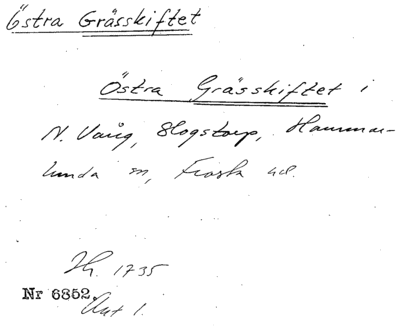 Östra Grässkiftet
Östra Grässkiftet i
N. Vång, Slogstorp, Hammar-
lunda sn, Frosta hd.
Jb. 1735
Nr 6852.
Akt 1.